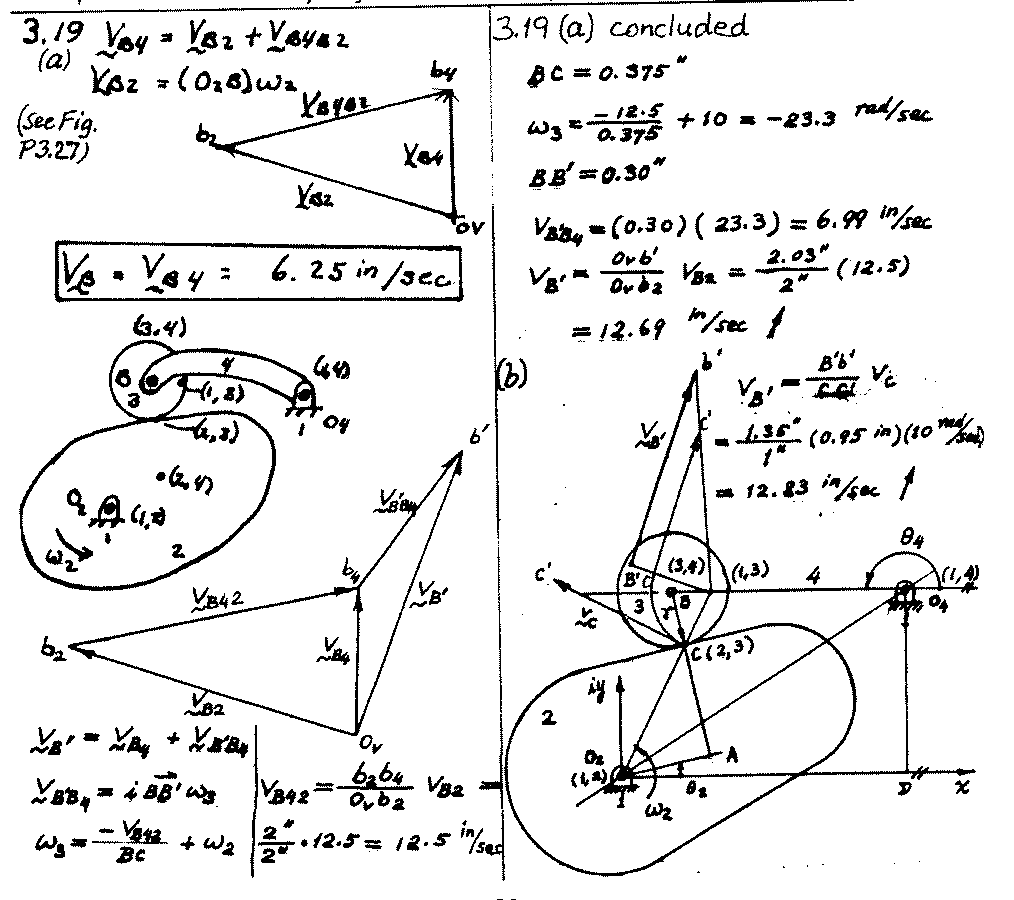 3.19 V_B4 = V_B2 + V_B4B2
(a) V_B2 = (O2B)ω2
(see Fig.
P3.27)
b4
V_B4B2
b2
V_B4
V_B2
Ov
V_B = V_B4 = 6.25 in/sec
(3,4)
4
(1,4)
B
3
(1,3)
1
O4
(2,3)
(2,4)
O2
(1,2)
1
ω2
2
b'
V_B'B4
b4
V_B42
V_B'
b2
V_B4
V_B2
Ov
V_B' = V_B4 + V_B'B4
V_B'B4 = i BB' ω3
ω3 = -V_B42/BC + ω2
V_B42 = b2b4/Ovb2 V_B2 =
2"/2" · 12.5 = 12.5 in/sec
3.19 (a) concluded
BC = 0.375"
ω3 = -12.5/0.375 + 10 = -23.3 rad/sec
BB' = 0.30"
V_B'B4 = (0.30)(23.3) = 6.99 in/sec
V_B' = Ovb'/Ovb2 V_B2 = 2.03"/2" (12.5)
= 12.69 in/sec
(b)
b'
V_B' = B'b'/CC' V_C
c'
V_B'
= 1.35"/1" (0.95 in)(10 rad/sec)
= 12.83 in/sec
θ4
c'
B'
C
(3,4)
(1,3)
4
(1,4)
V_C
3
B
r
O4
C(2,3)
iy
2
O2
(1,2)
A
1
θ2
ω2
D
x